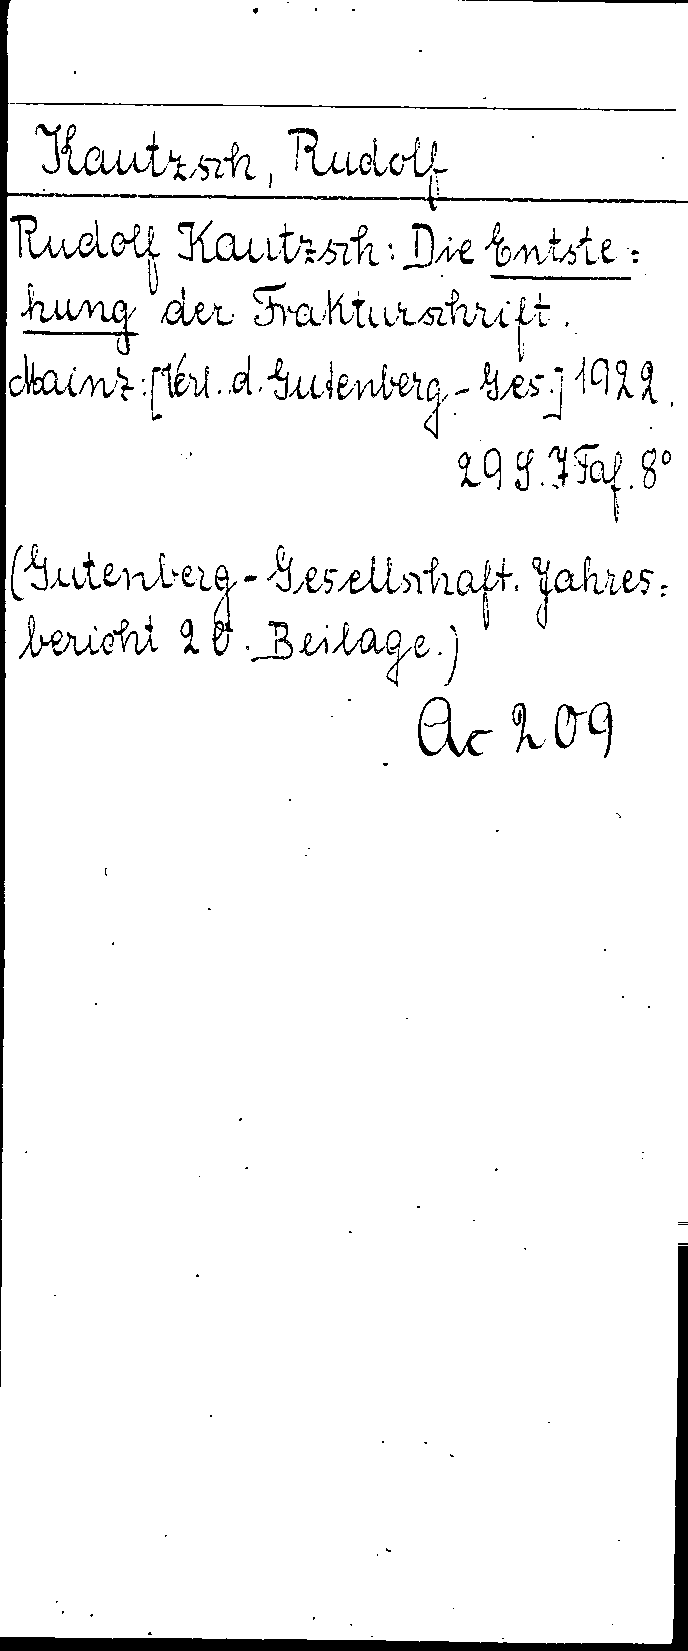 Kautzsch, Rudolf
Rudolf Kautzsch: Die Entste=
hung der Frakturschrift.
Mainz: [Verl. d. Gutenberg-Ges.] 1922.
29 S. 7 Taf. 8°
(Gutenberg-Gesellschaft. Jahres=
bericht 20. Beilage.)
Ac 209